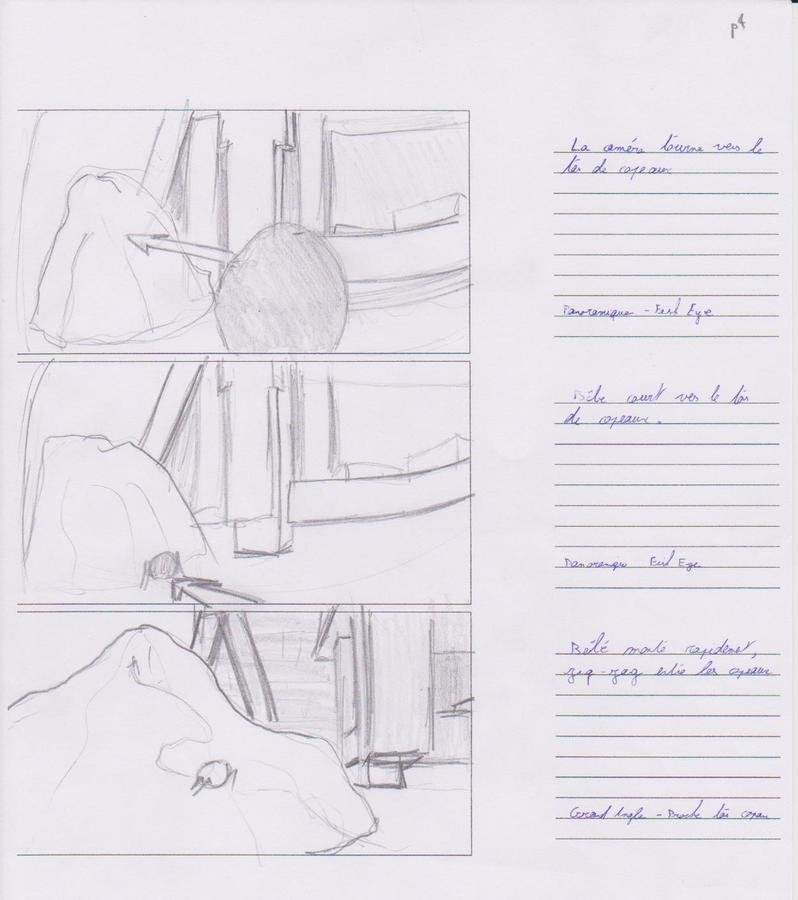 p4
La caméra tourne vers le
tas de copeaux
Panoramique - Fish Eye
Bébé court vers le tas
de copeaux.
Panoramique Fish Eye
Bébé monte rapidement,
zig-zag entre les copeaux
Grand Angle - Proche tas copeau